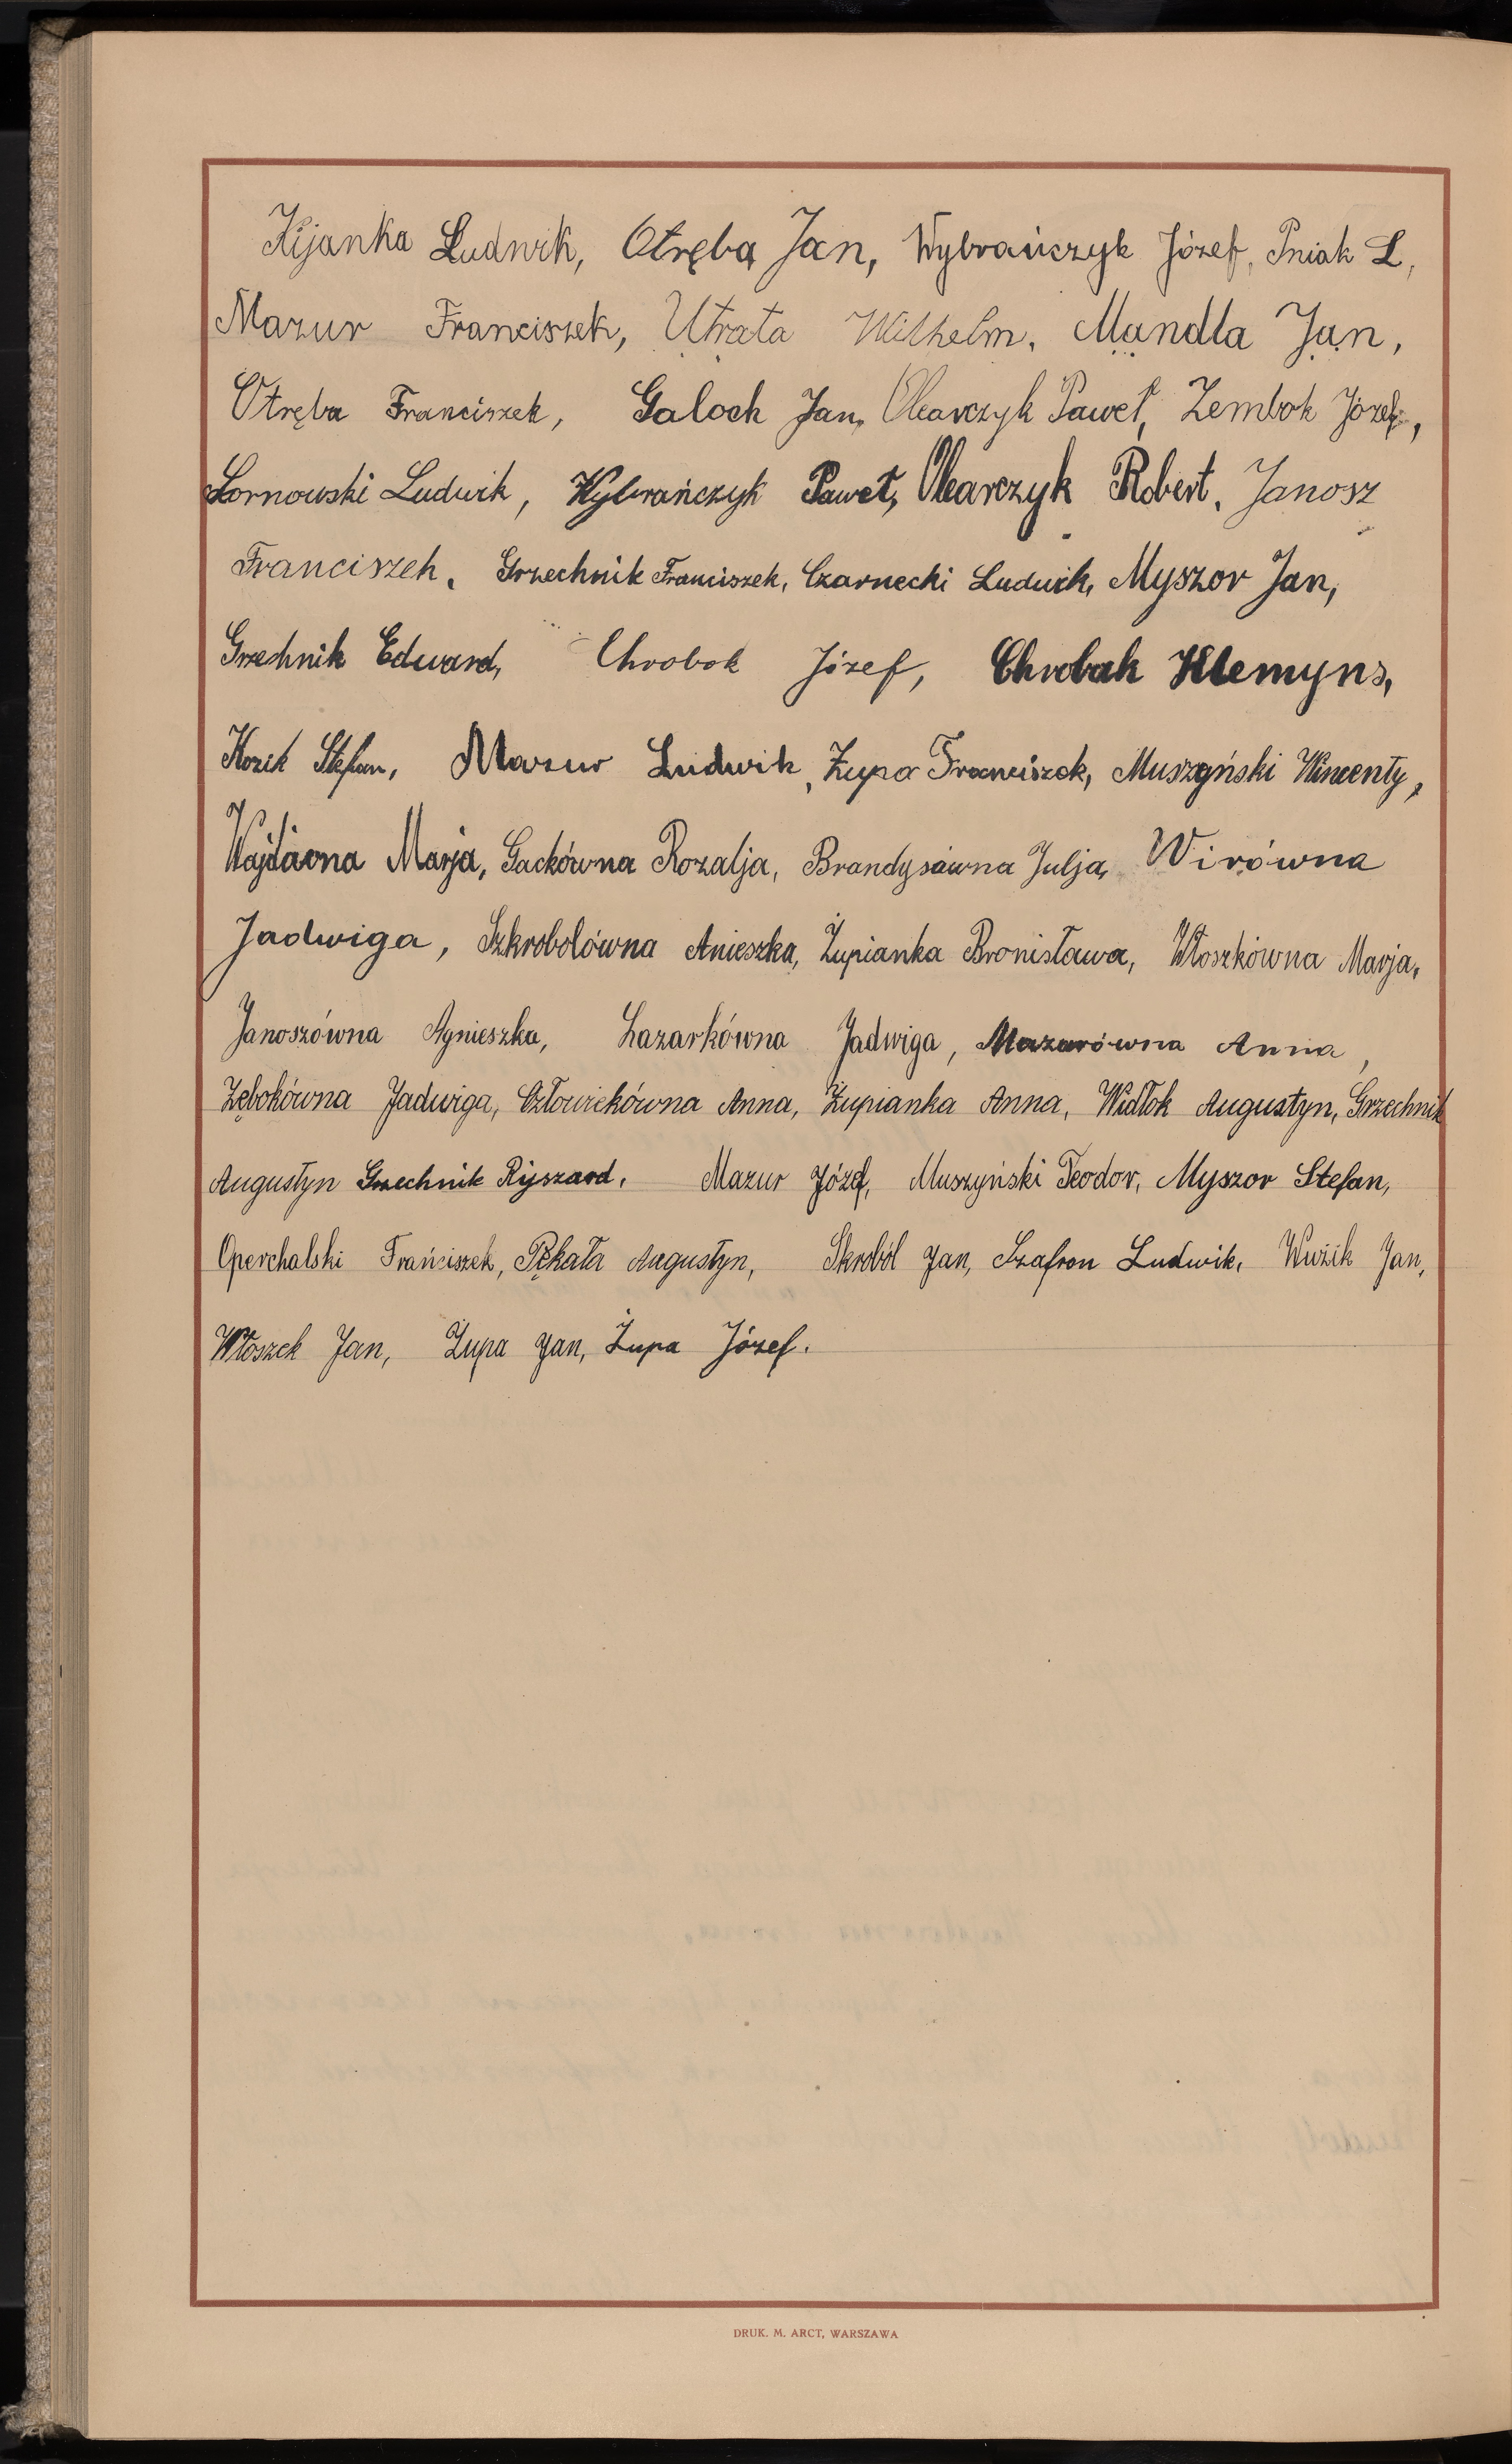 Kijanka Ludwik, Otręba Jan, Wybrańczyk Józef, Pniak L,
Mazur Franciszek, Utrata Wilhelm, Mandla Jan,
Otręba Franciszek, Galoch Jan, Olearczyk Paweł, Zembok Józef,
Sornowski Ludwik, Wybrańczyk Paweł, Olearczyk Robert, Janosz
Franciszek, Grzechnik Franciszek, Czarnecki Ludwik, Myszor Jan,
Grzechnik Edward, Chrobok Józef, Chrobak Klemyns,
Kozik Stefan, Mazur Ludwik, Żupa Franciszek, Muszyński Wincenty,
Wajdówna Marja, Gackówna Rozalja, Brandysówna Julja, Wirówna
Jadwiga, Szkrobolówna Anieszka, Żupianka Bronisława, Włoszkówna Marja,
Janoszówna Agnieszka, Łazarkówna Jadwiga, Mazurówna Anna,
Zębokówna Jadwiga, Człowiekówna Anna, Żupianka Anna, Widłok Augustyn, Grzechnik
Augustyn Grzechnik Ryszard, Mazur Józef, Muszyński Teodor, Myszor Stefan,
Operchalski Frańciszek, Pękała Augustyn, Skroból Jan, Szafron Ludwik, Wuzik Jan,
Włoszek Jan, Żupa Jan, Żupa Józef.
DRUK. M. ARCT, WARSZAWA